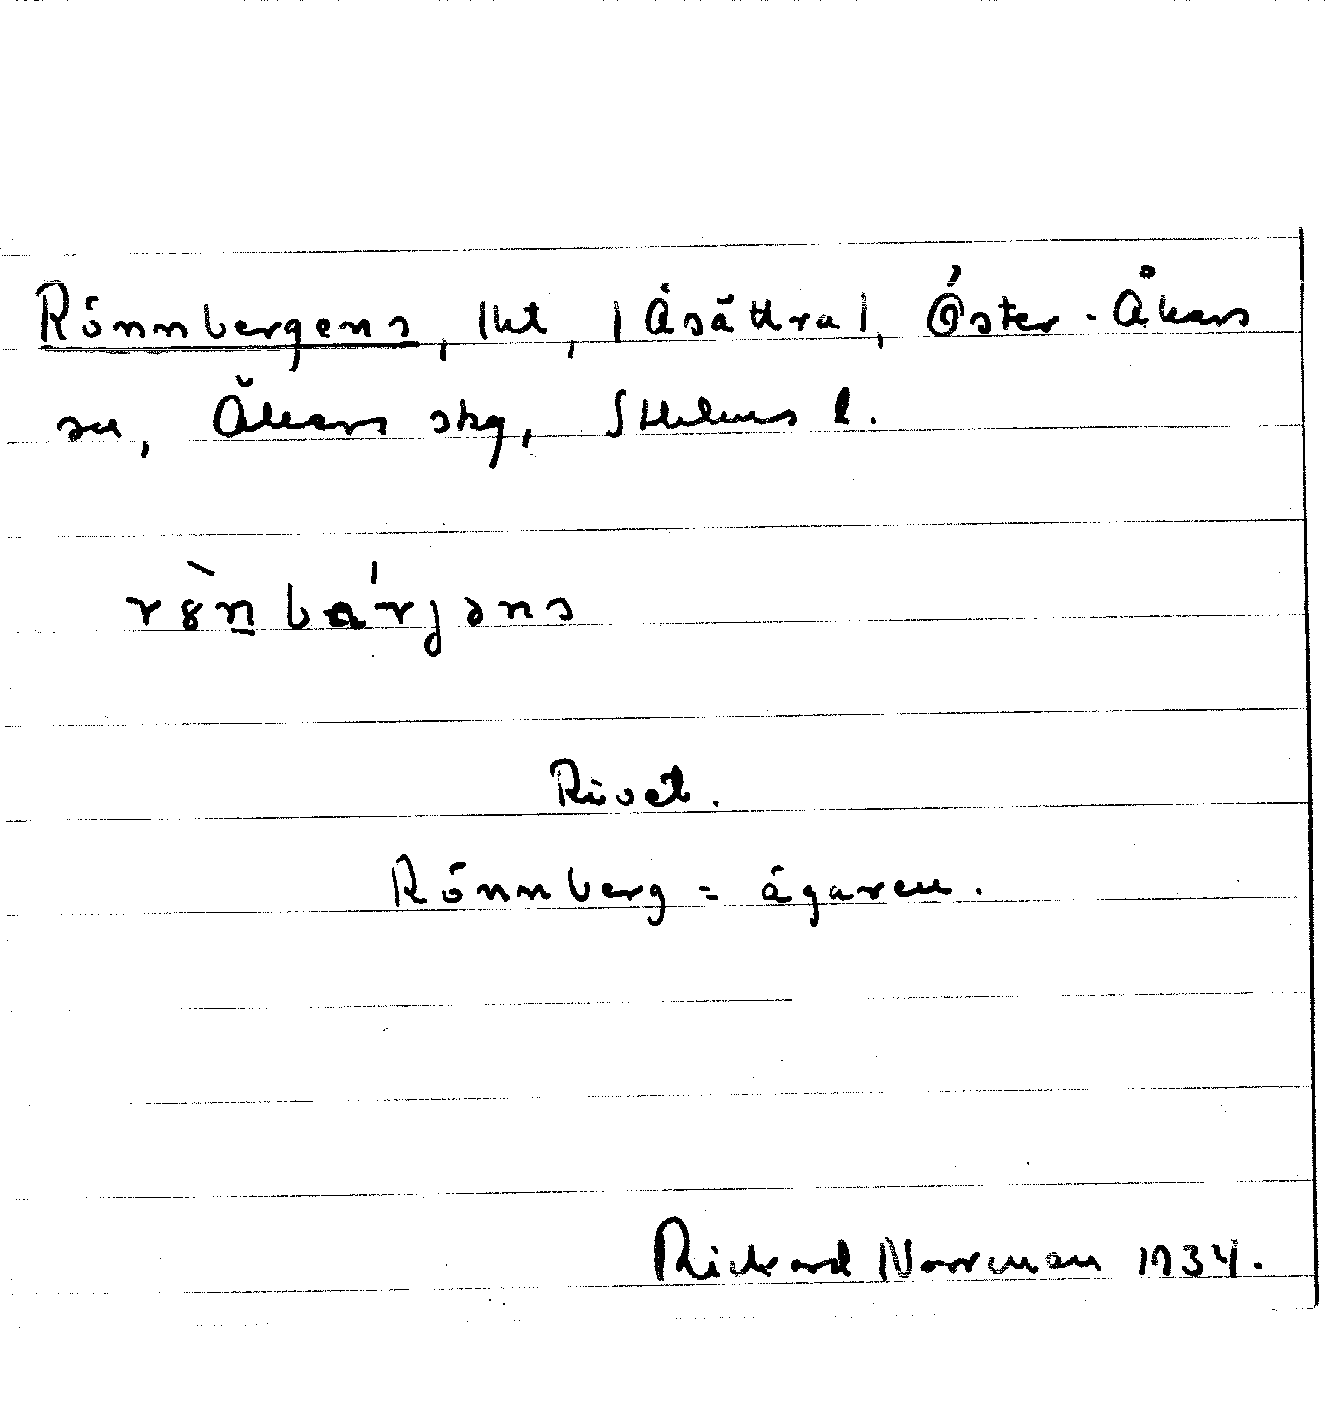 Rönnbergens, lht, [Åsättra], Öster-Åkers
sn, Åkers skg, Sthlms l.
rȣ̀n̲bá'rjəns
Rivet.
Rönnberg = ägaren.
Rickard Norrman 1934.